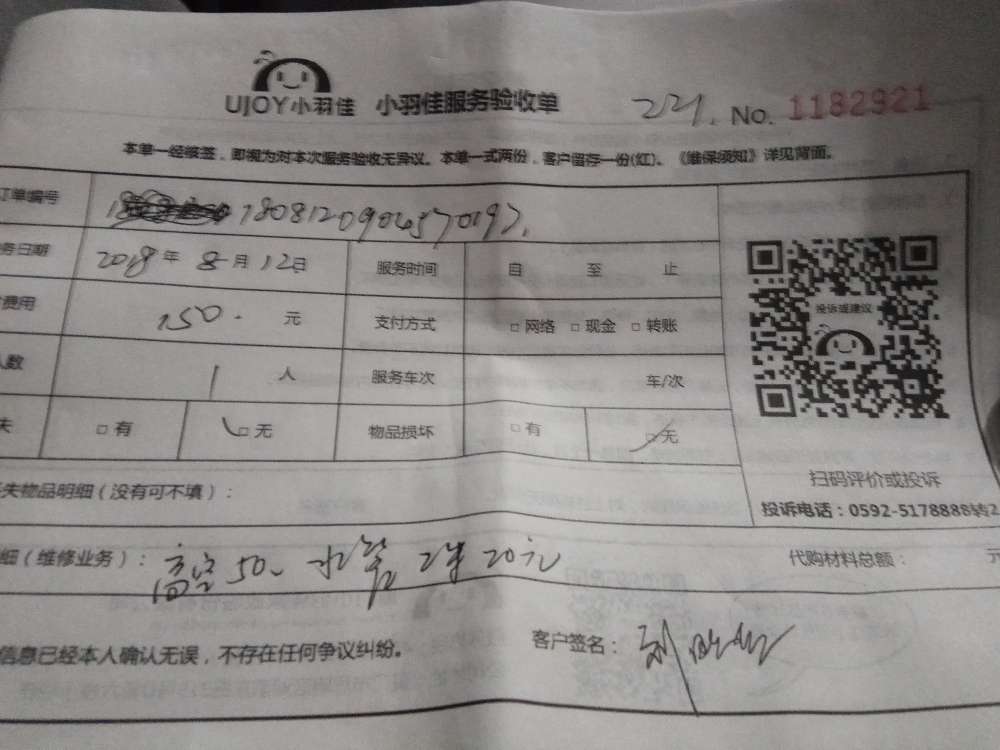 UJOY小羽佳 小羽佳服务验收单 221. No. 1182921
本单一经接签，即视为对本次服务验收无异议。本单一式两份，客户留存一份(红)。《维保须知》详见背面。
订单编号 1808120904570197.
务日期 2018年 8月12日 服务时间 自 至 止
费用 150. 元 支付方式 □网络 □现金 □转账
人数 1 人 服务车次 车/次
失 □有 □无 物品损坏 □有 □无
投诉或建议
扫码评价或投诉
投诉电话：0592-5178888转2
失物品明细（没有可不填）：
细（维修业务）： 高空50、水管2米20元 代购材料总额： 元
信息已经本人确认无误，不存在任何争议纠纷。 客户签名： 刘